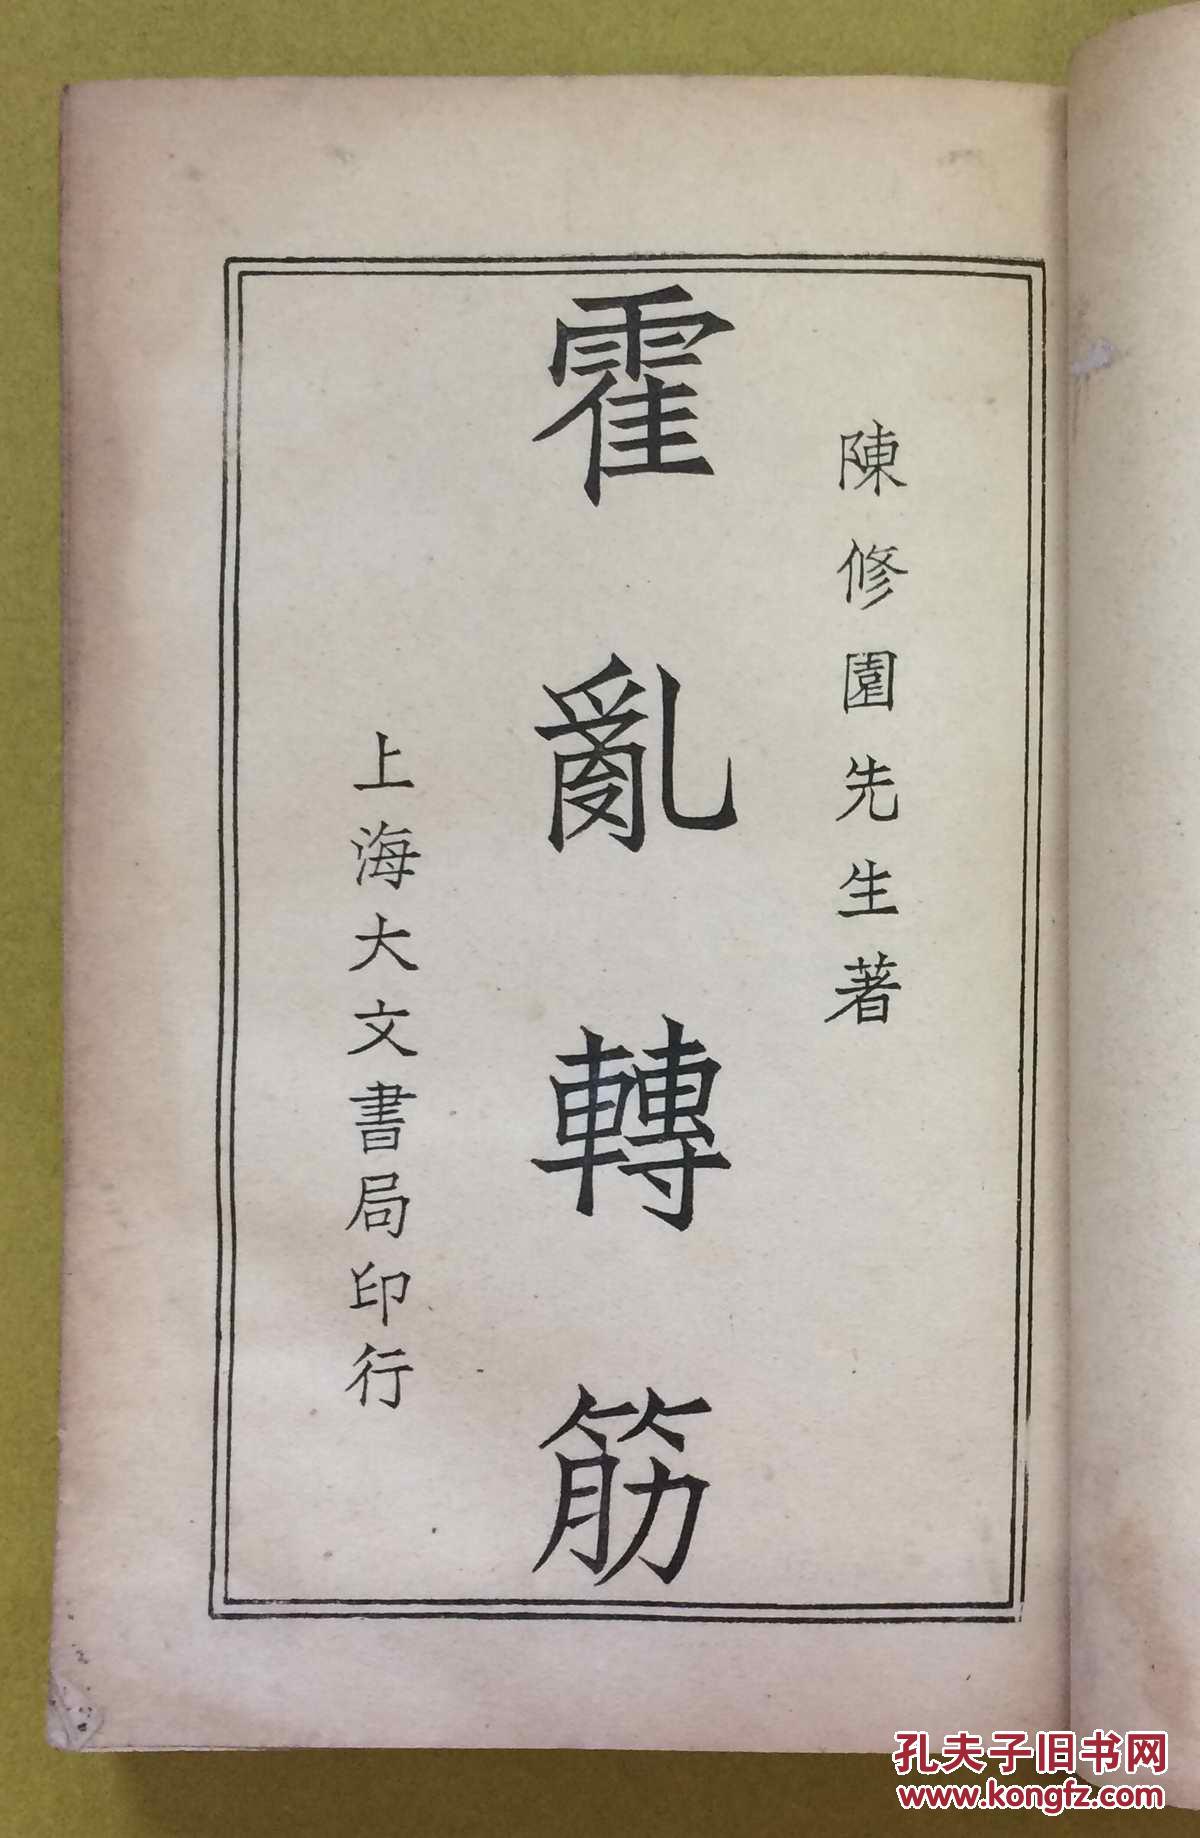 陳修園先生著
霍亂轉筋
上海大文書局印行
孔夫子旧书网
www.kongfz.com